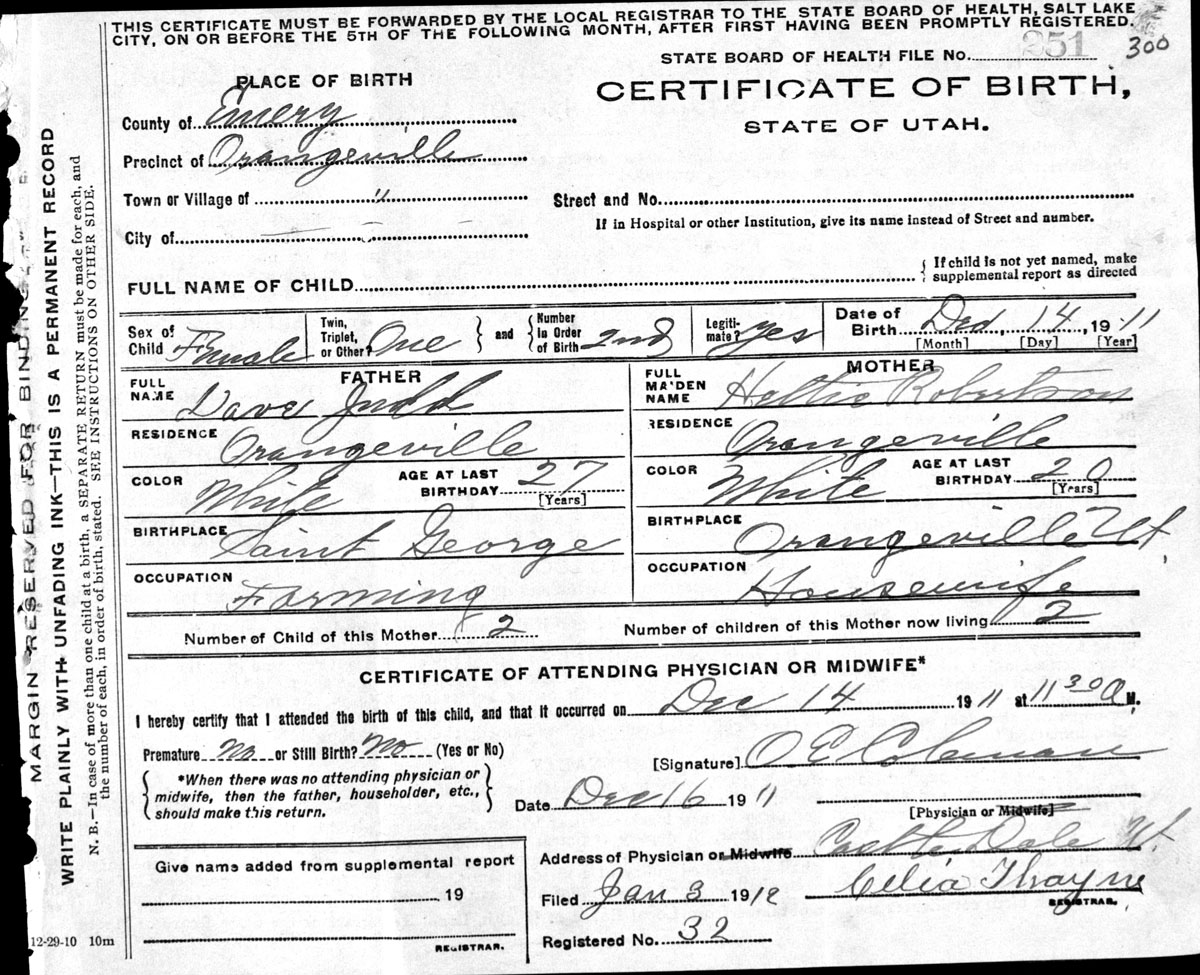 THIS CERTIFICATE MUST BE FORWARDED BY THE LOCAL REGISTRAR TO THE STATE BOARD OF HEALTH, SALT LAKE
CITY, ON OR BEFORE THE 5TH OF THE FOLLOWING MONTH, AFTER FIRST HAVING BEEN PROMPTLY REGISTERED.
STATE BOARD OF HEALTH FILE No. 251 300
PLACE OF BIRTH
CERTIFICATE OF BIRTH,
STATE OF UTAH.
County of Emery
Precinct of Orangeville
Town or Village of "
Street and No.
If in Hospital or other Institution, give its name instead of Street and number.
City of
FULL NAME OF CHILD
{ If child is not yet named, make
supplemental report as directed
Sex of Child Female
Twin, Triplet, or Other? One } and { Number in Order of Birth 2nd
Legitimate? yes
Date of Birth Dec, 14, 1911
[Month] [Day] [Year]
FATHER
FULL NAME Dave Judd
RESIDENCE Orangeville
COLOR White AGE AT LAST BIRTHDAY 27 [Years]
BIRTHPLACE Saint George
OCCUPATION Farming
MOTHER
FULL MAIDEN NAME Hettie Robertson
RESIDENCE Orangeville
COLOR White AGE AT LAST BIRTHDAY 20 [Years]
BIRTHPLACE Orangeville Ut
OCCUPATION Housewife
Number of Child of this Mother 2 Number of children of this Mother now living 2
CERTIFICATE OF ATTENDING PHYSICIAN OR MIDWIFE*
I hereby certify that I attended the birth of this child, and that it occurred on Dec 14 1911 at 11 30 A M.
Premature No or Still Birth? No (Yes or No)
[Signature] O E Coleman
{ *When there was no attending physician or
midwife, then the father, householder, etc.,
should make this return. }
Date Dec 16 1911
[Physician or Midwife]
Address of Physician or Midwife Castle Dale Ut.
Give name added from supplemental report
19
REGISTRAR.
Filed Jan 3 1912 Celia Thayne
REGISTRAR.
Registered No. 32
12-29-10 10m
MARGIN RESERVED FOR BINDING
WRITE PLAINLY WITH UNFADING INK—THIS IS A PERMANENT RECORD
N. B.—In case of more than one child at a birth, a SEPARATE RETURN must be made for each, and
the number of each, in order of birth, stated. SEE INSTRUCTIONS ON OTHER SIDE.